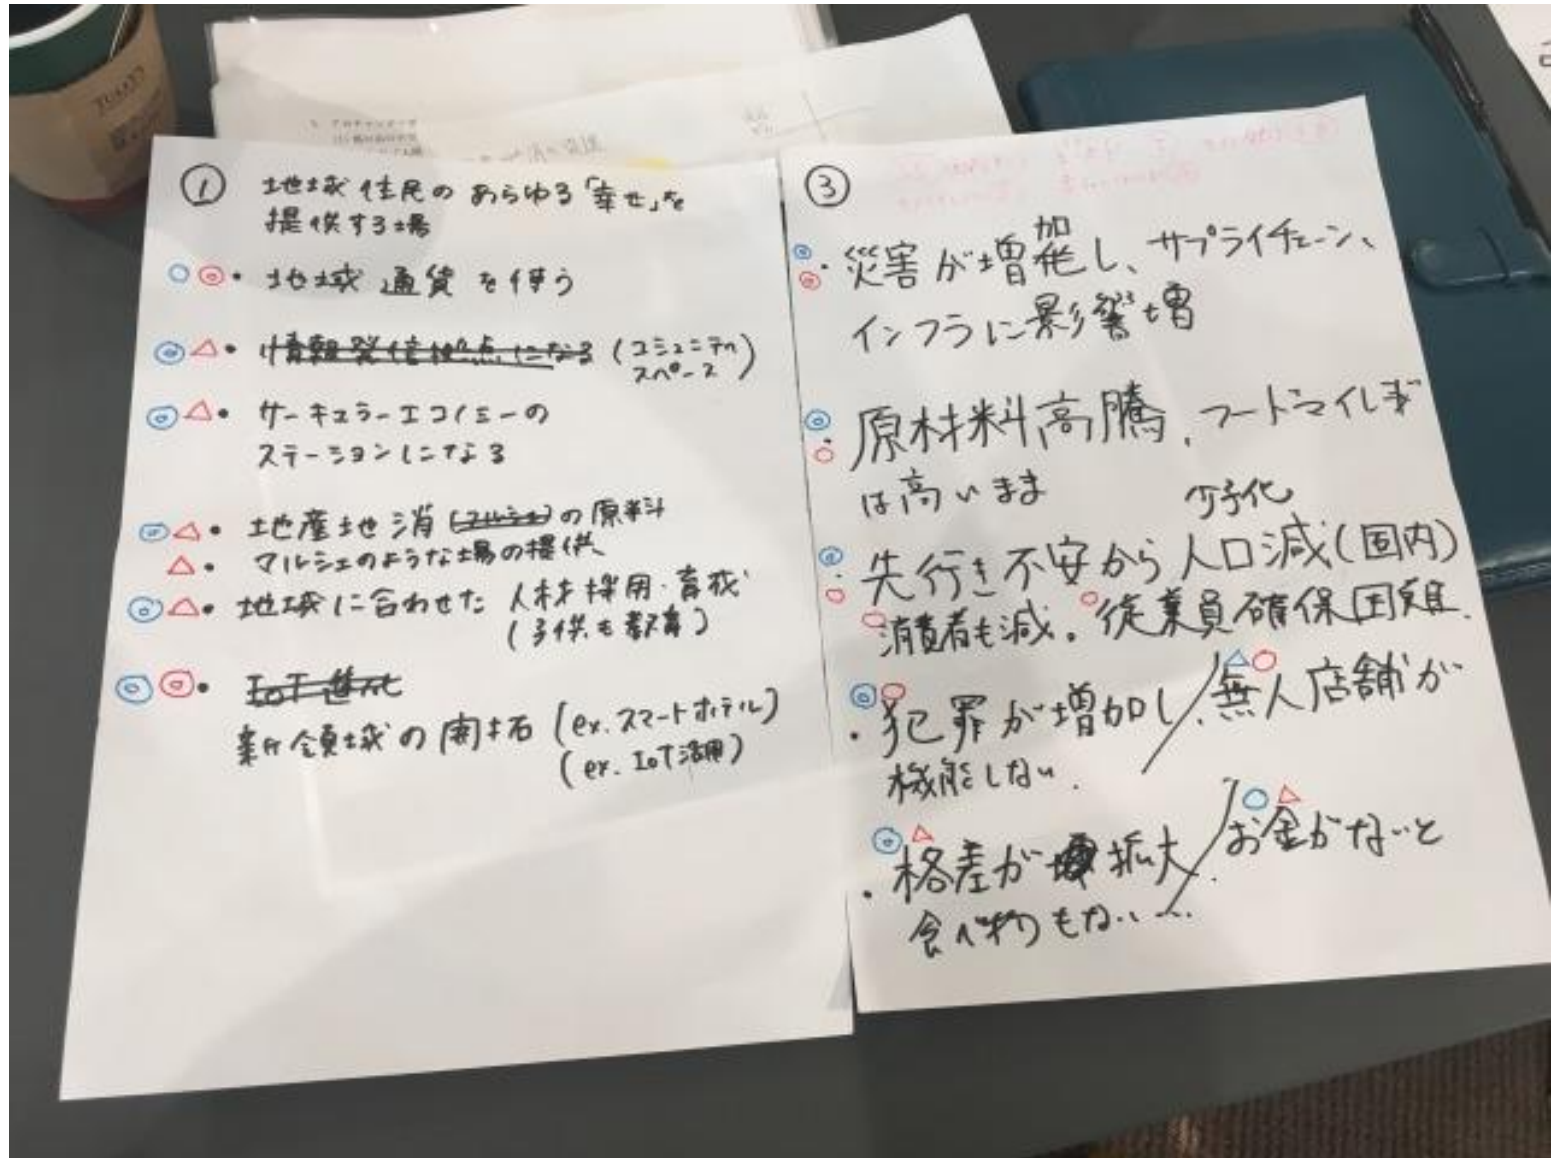 TULLY'S
① 地域住民のあらゆる「幸せ」を
提供する場
・地域通貨を使う
・情報発信拠点になる (コミュニティ
スペース)
・サーキュラーエコノミーの
ステーションになる
・地産地消(マルシェ)の原料
・マルシェのような場の提供、
・地域に合わせた 人材採用・育成
(子供も教育)
・IoT進化
新領域の開拓 (ex. スマートホテル)
(ex. IoT活用)
③
加
・災害が増発し、サプライチェーン、
インフラに影響増
原材料高騰、フードマイレージ
は高いまま
少子化
・先行き不安から人口減(国内)
消費者も減。従業員確保困難.
・犯罪が増加し/無人店舗が
機能しない.
・格差が増拡大./お金がないと
食べ物もない….